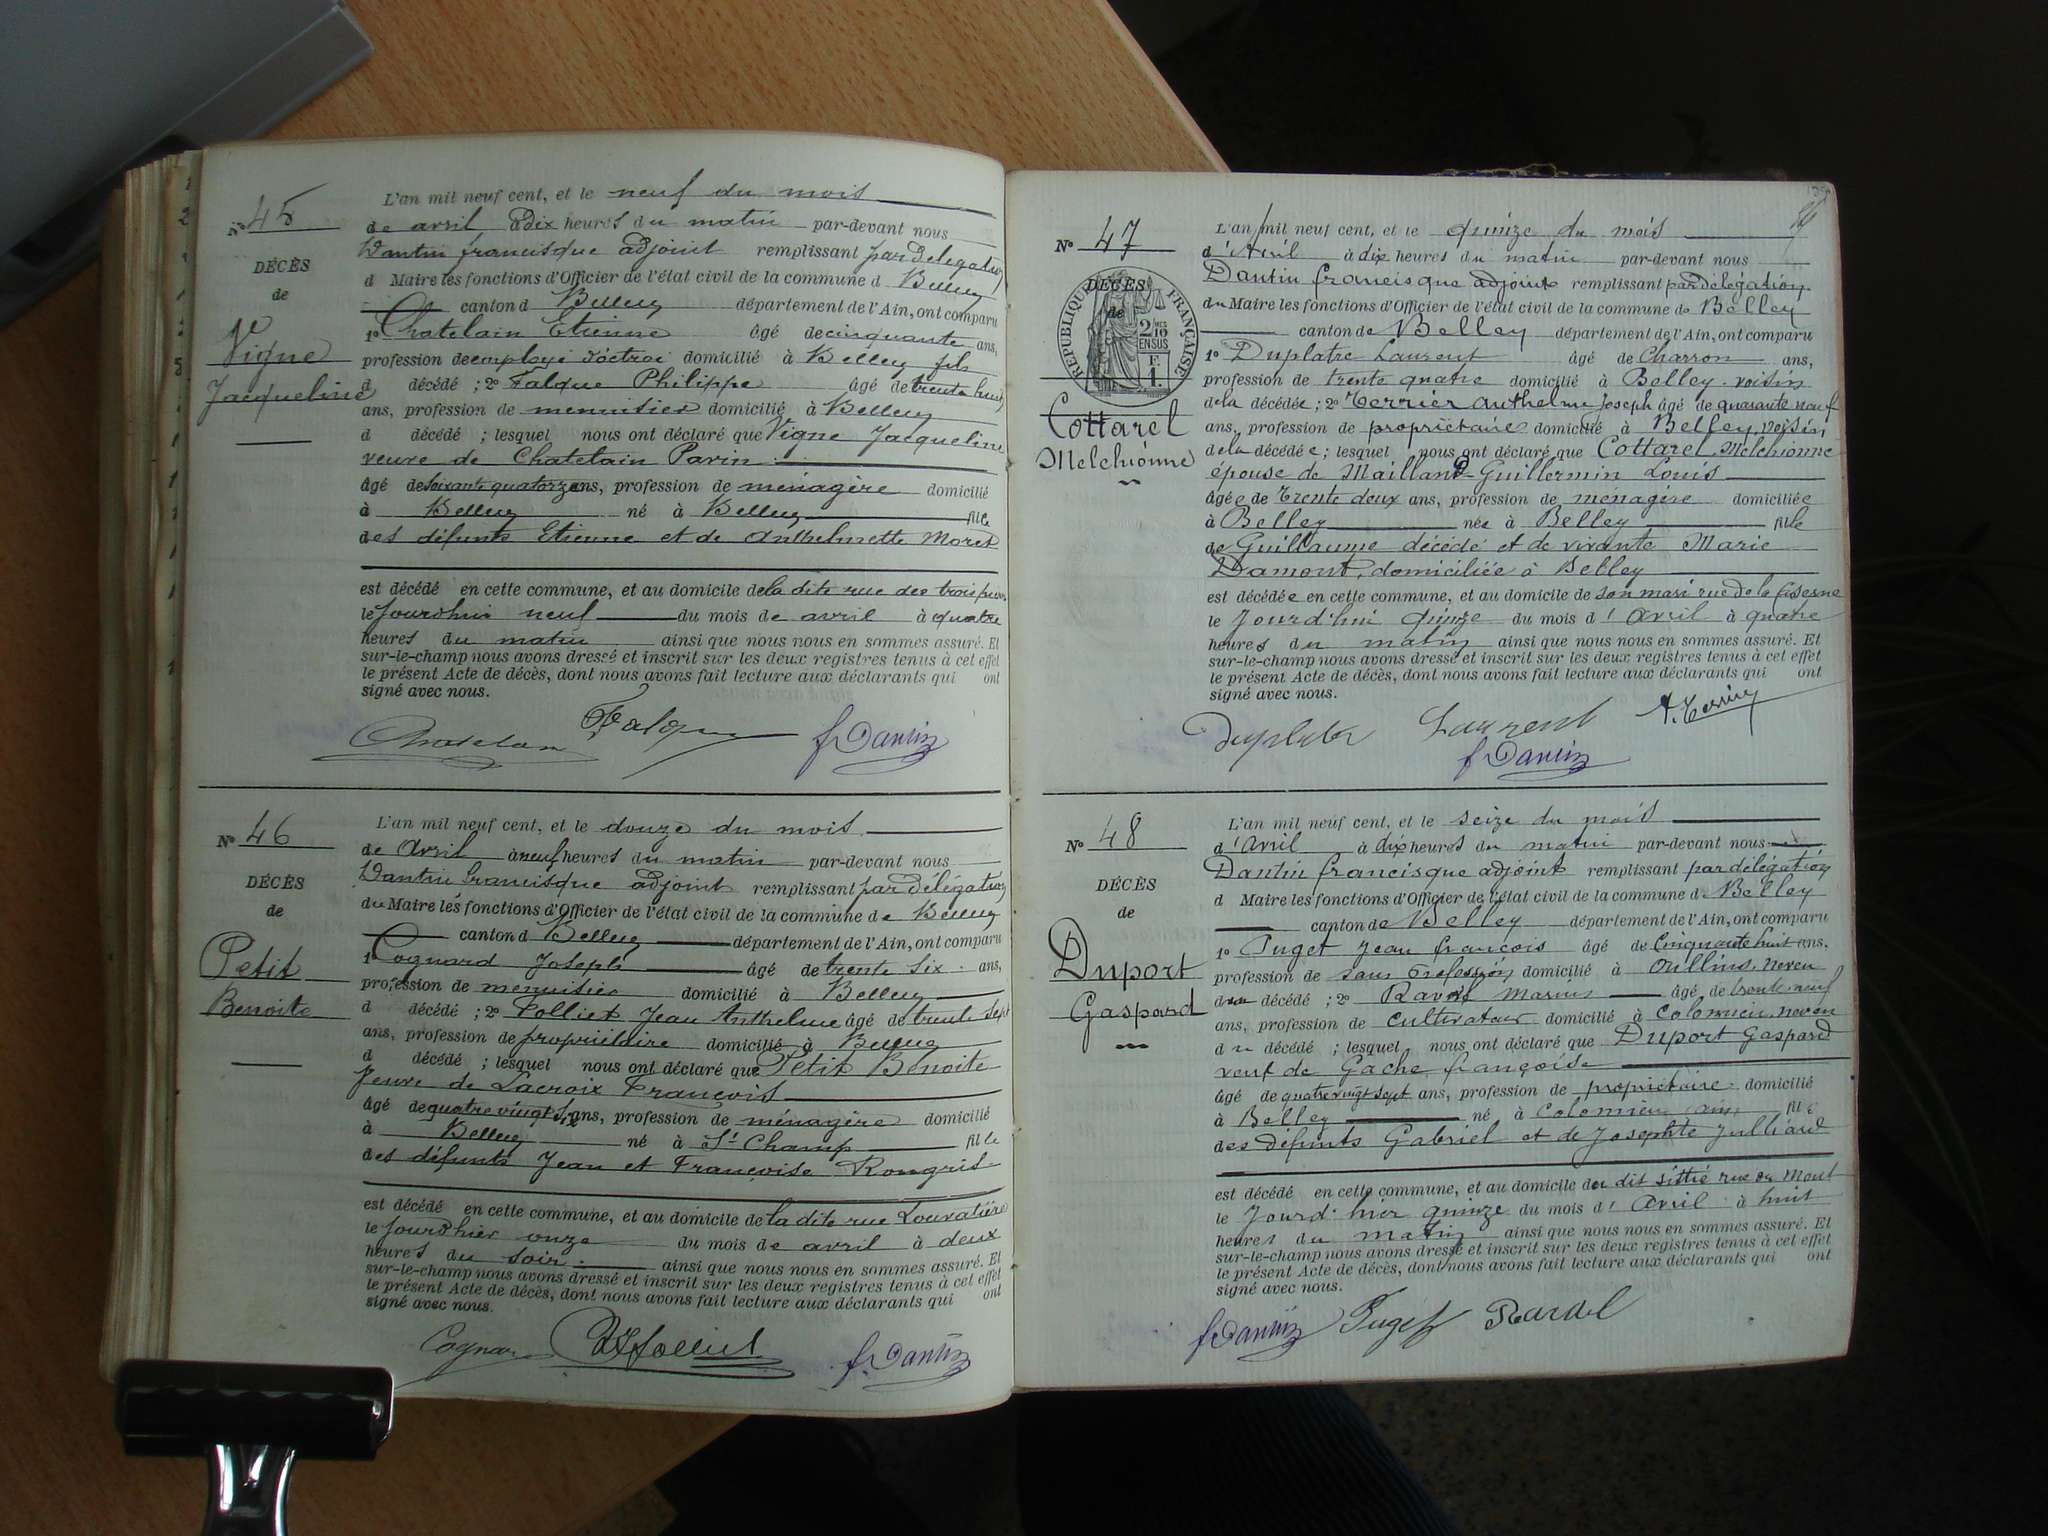 N° 45
DÉCÈS
de
Ve
Vigne
Jacqueline
L'an mil neuf cent, et le neuf du mois
de avril à dix heures du matin par-devant nous
Dantin francisque adjoint remplissant par délégation
d Maire les fonctions d'Officier de l'état civil de la commune d Belley
canton d Belley département de l'Ain, ont comparu
1° Chatelain Etienne âgé de cinquante ans,
profession de employé d'octroi domicilié à Belley fils
d décédé ; 2° Falque Philippe âgé de trente huit
ans, profession de menuisier domicilié à Belley
d décédé ; lesquel nous ont déclaré que Vigne Jacqueline
veuve de Chatelain Pavin
âgé de soixante quatorze ans, profession de ménagère domicilié
à Belley né à Belley fille
des défunts Etienne et de Anthelmette Moret
est décédé en cette commune, et au domicile de la dite rue des trois
le Jourd'hui neuf du mois de avril à quatre
heures du matin ainsi que nous nous en sommes assuré. Et
sur-le-champ nous avons dressé et inscrit sur les deux registres tenus à cet effet
le présent Acte de décès, dont nous avons fait lecture aux déclarants qui ont
signé avec nous.
Chatelain Falque f. Dantin
N° 46
DÉCÈS
de
Petit
Benoite
L'an mil neuf cent, et le douze du mois
de Avril à neuf heures du matin par-devant nous
Dantin francisque adjoint remplissant par délégation
du Maire les fonctions d'Officier de l'état civil de la commune de Belley
canton d Belley département de l'Ain, ont comparu
1° Cognard Joseph âgé de trente six ans,
profession de menuisier domicilié à Belley
d décédé ; 2° Folliet Jean Anthelme âgé de trente sept
ans, profession de propriétaire domicilié à Belley
d décédé ; lesquel nous ont déclaré que Petit Benoite
veuve de Lacroix François
âgé de quatre vingt six ans, profession de ménagère domicilié
à Belley né à St Champ fille
des défunts Jean et Françoise Rongris
est décédé en cette commune, et au domicile de la dite rue
le Jourd'hier onze du mois de avril à deux
heures du soir ainsi que nous nous en sommes assuré. Et
sur-le-champ nous avons dressé et inscrit sur les deux registres tenus à cet effet
le présent Acte de décès, dont nous avons fait lecture aux déclarants qui ont
signé avec nous.
Cognard Folliet f. Dantin
N° 47
DÉCÈS
de
RÉPUBLIQUE FRANÇAISE
2 MES 10 EN SUS
F 1.
Cottarel
Melchionne
L'an mil neuf cent, et le quinze du mois
d'Avril à dix heures du matin par-devant nous
Dantin francisque adjoint remplissant par délégation
du Maire les fonctions d'Officier de l'état civil de la commune de Belley
canton de Belley département de l'Ain, ont comparu
1° Duplatre Laurent âgé de Charron ans,
profession de trente quatre domicilié à Belley voisin
de la décédée ; 2° Terrier Anthelme Joseph âgé de quarante neuf
ans, profession de propriétaire domicilié à Belley voisin
de la décédée ; lesquel nous ont déclaré que Cottarel Melchionne
épouse de Mailland-Guillermin Louis
âgée de Trente deux ans, profession de ménagère domiciliée
à Belley née à Belley fille
de Guillaume décédé et de vivante Marie
Damont, domiciliée à Belley
est décédée en cette commune, et au domicile de son mari rue de la Caserne
le Jourd'hui quinze du mois d'Avril à quatre
heures du matin ainsi que nous nous en sommes assuré. Et
sur-le-champ nous avons dressé et inscrit sur les deux registres tenus à cet effet
le présent Acte de décès, dont nous avons fait lecture aux déclarants qui ont
signé avec nous.
Duplatre Laurent A. Terrier
f. Dantin
N° 48
DÉCÈS
de
Duport
Gaspard
L'an mil neuf cent, et le seize du mois
d'Avril à dix heures du matin par-devant nous
Dantin francisque adjoint remplissant par délégation
d Maire les fonctions d'Officier de l'état civil de la commune de Belley
canton de Belley département de l'Ain, ont comparu
1° Puget Jean françois âgé de Cinquante huit ans,
profession de sans profession domicilié à Oullins, neveu
du décédé ; 2° Marius âgé de trente neuf
ans, profession de cultivateur domicilié à Colomieu, neveu
du décédé ; lesquel nous ont déclaré que Duport Gaspard
veuf de Gache françoise
âgé de quatre vingt sept ans, profession de propriétaire domicilié
à Belley né à Colomieu ain fils
des défunts Gabriel et de Josephte Julliard
est décédé en cette commune, et au domicile du dit rue du
le Jourd'hier quinze du mois d'Avril à huit
heures du matin ainsi que nous nous en sommes assuré. Et
sur-le-champ nous avons dressé et inscrit sur les deux registres tenus à cet effet
le présent Acte de décès, dont nous avons fait lecture aux déclarants qui ont
signé avec nous.
f. Dantin Puget